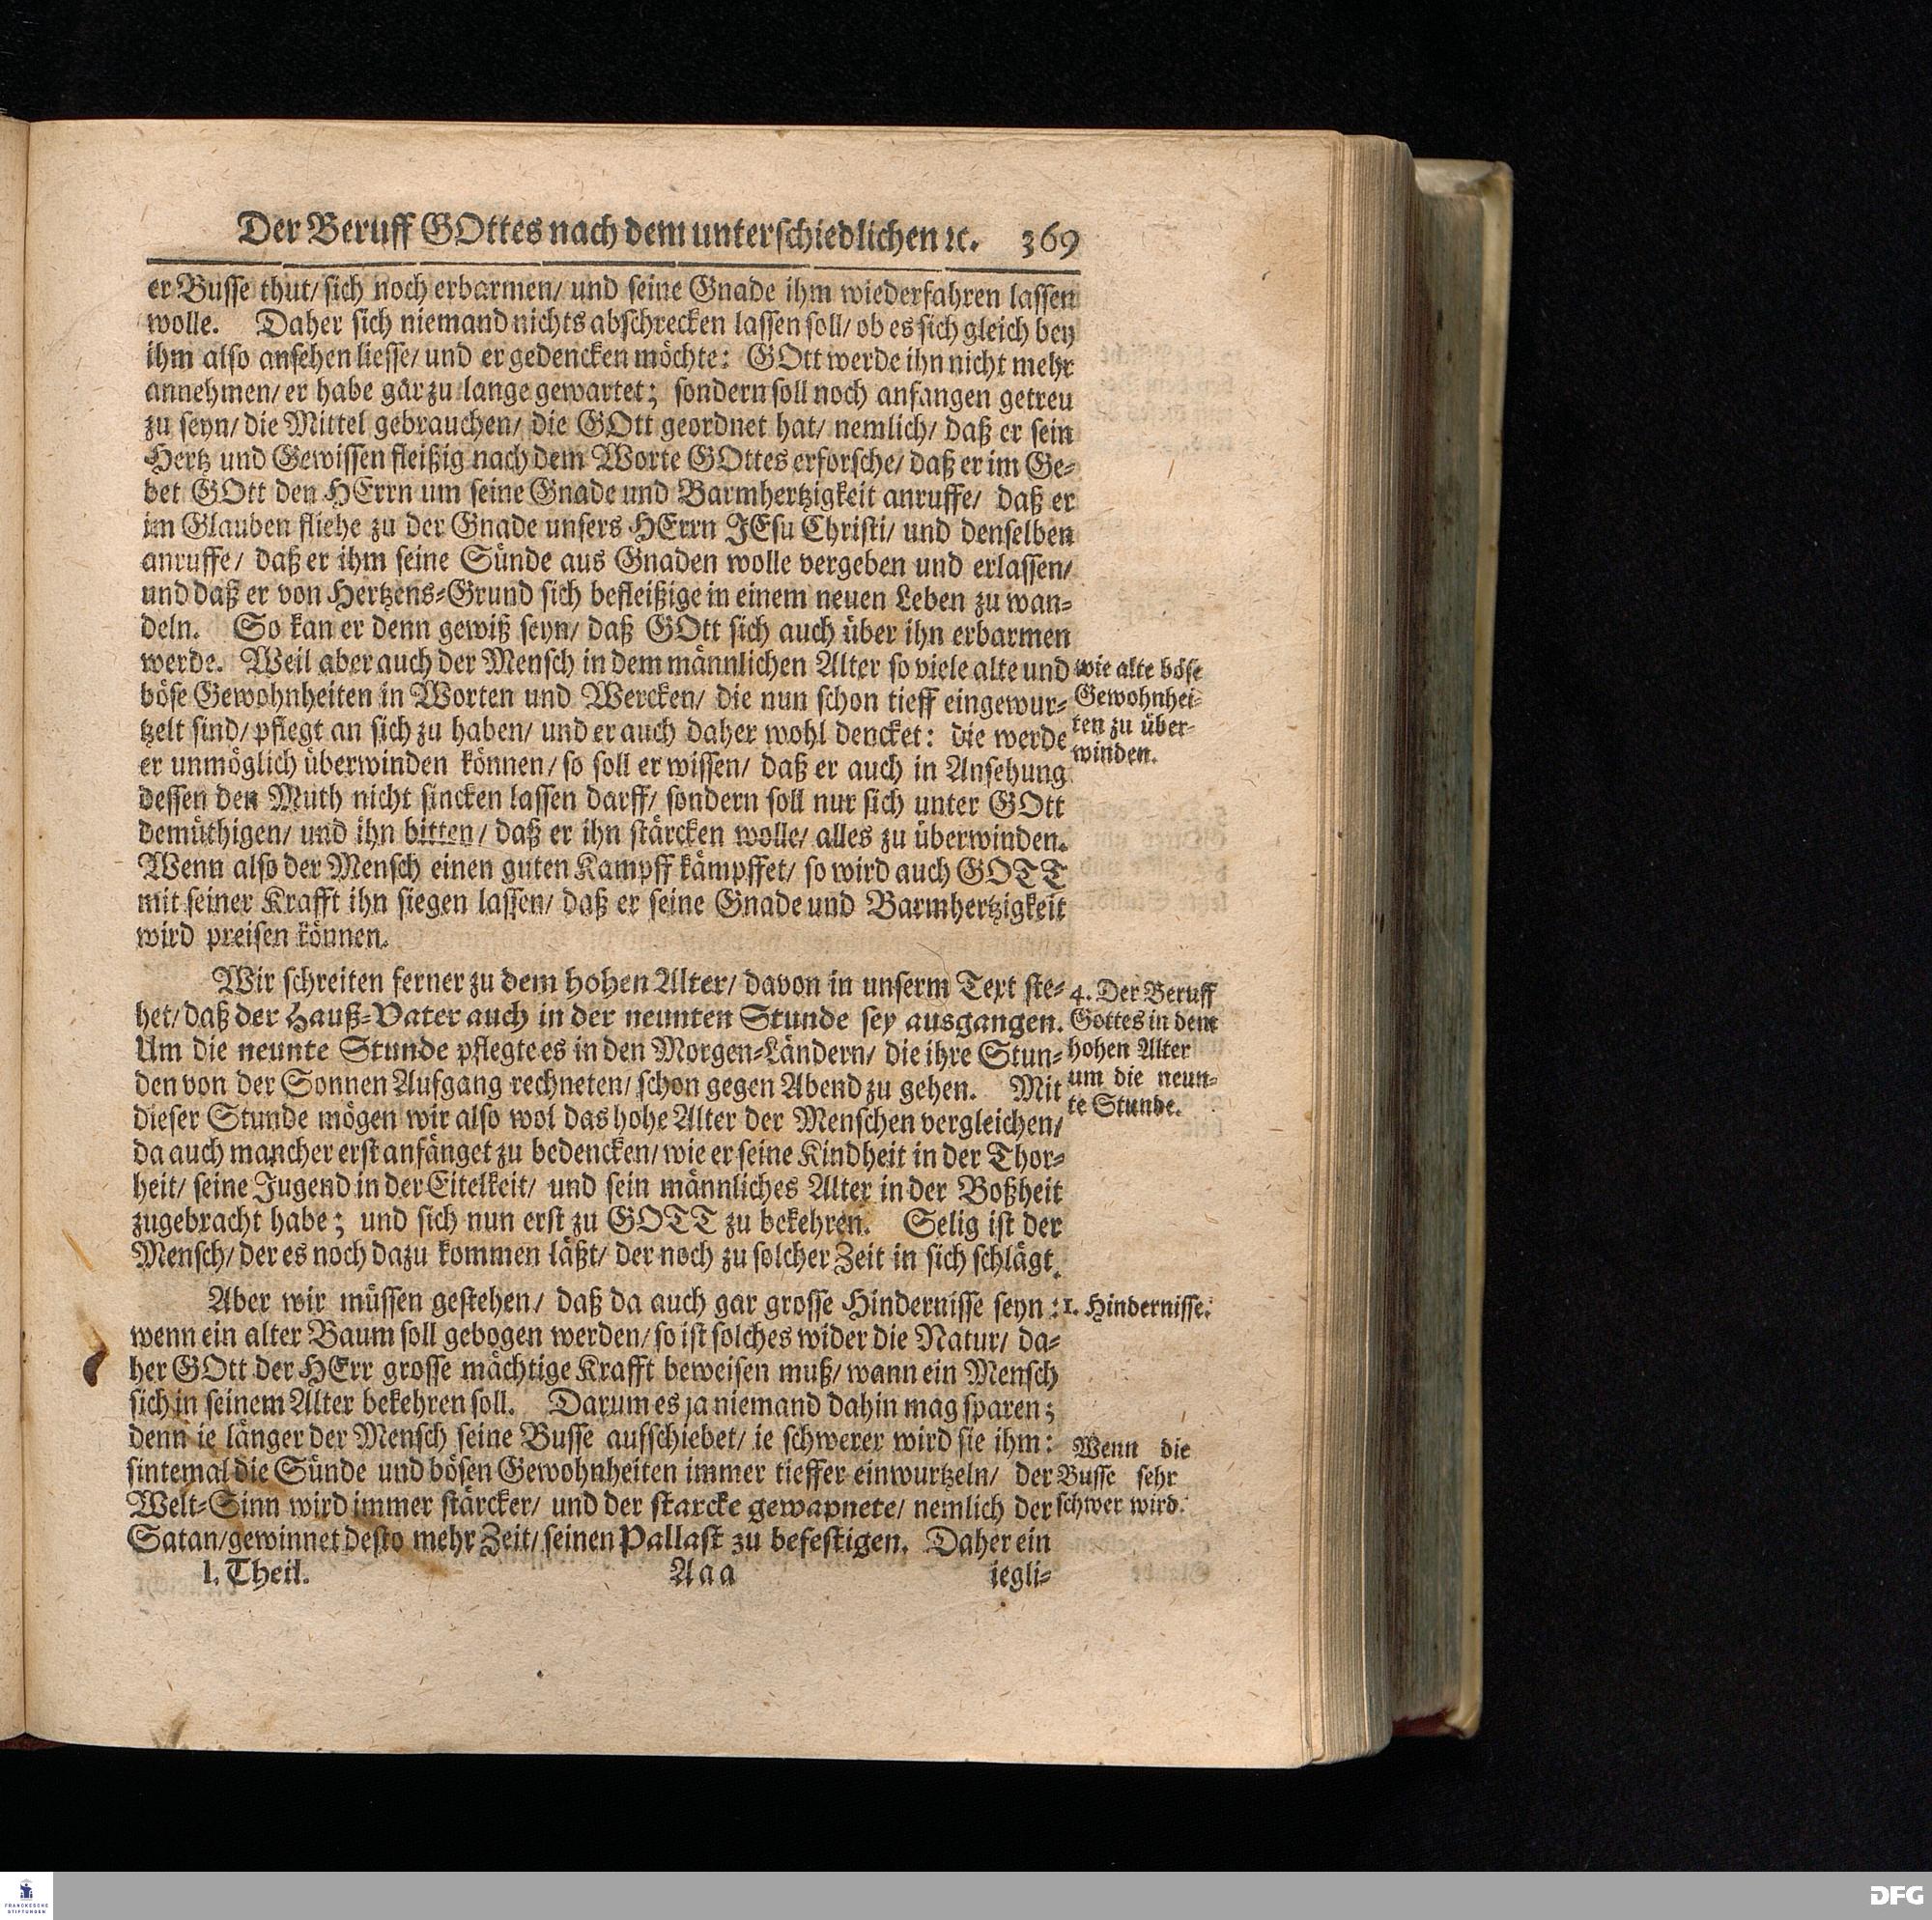 Der Beruff GOttes nach dem unterschiedlichen ꝛc. 369
er Busse thut/ sich noch erbarmen/ und seine Gnade ihm wiederfahren lassen
wolle. Daher sich niemand nichts abschrecken lassen soll/ ob es sich gleich bey
ihm also ansehen liesse/ und er gedencken möchte: GOtt werde ihn nicht mehr
annehmen/ er habe gar zu lange gewartet; sondern soll noch anfangen getreu
zu seyn/ die Mittel gebrauchen/ die GOtt geordnet hat/ nemlich/ daß er sein
Hertz und Gewissen fleißig nach dem Worte GOttes erforsche/ daß er im Ge-
bet GOtt den HErrn um seine Gnade und Barmhertzigkeit anruffe/ daß er
im Glauben fliehe zu der Gnade unsers HErrn JEsu Christi/ und denselben
anruffe/ daß er ihm seine Sünde aus Gnaden wolle vergeben und erlassen/
und daß er von Hertzens-Grund sich befleißige in einem neuen Leben zu wan-
deln. So kan er denn gewiß seyn/ daß GOtt sich auch über ihn erbarmen
werde. Weil aber auch der Mensch in dem männlichen Alter so viele alte und
böse Gewohnheiten in Worten und Wercken/ die nun schon tieff eingewur-
tzelt sind/ pflegt an sich zu haben/ und er auch daher wohl dencket: die werde
er unmöglich überwinden können/ so soll er wissen/ daß er auch in Ansehung
dessen den Muth nicht sincken lassen darff/ sondern soll nur sich unter GOtt
demüthigen/ und ihn bitten/ daß er ihn stärcken wolle/ alles zu überwinden.
Wenn also der Mensch einen guten Kampff kämpffet/ so wird auch GOTT
mit seiner Krafft ihn siegen lassen/ daß er seine Gnade und Barmhertzigkeit
wird preisen können.
wie alte böse
Gewohnhei-
ten zu über-
winden.
Wir schreiten ferner zu dem hohen Alter/ davon in unserm Text ste-
het/ daß der Hauß-Vater auch in der neunten Stunde sey ausgangen.
Um die neunte Stunde pflegte es in den Morgen-Ländern/ die ihre Stun-
den von der Sonnen Aufgang rechneten/ schon gegen Abend zu gehen. Mit
dieser Stunde mögen wir also wol das hohe Alter der Menschen vergleichen/
da auch mancher erst anfänget zu bedencken/ wie er seine Kindheit in der Thor-
heit/ seine Jugend in der Eitelkeit/ und sein männliches Alter in der Boßheit
zugebracht habe; und sich nun erst zu GOTT zu bekehren. Selig ist der
Mensch/ der es noch dazu kommen läßt/ der noch zu solcher Zeit in sich schlägt.
4. Der Beruff
Gottes in dem
hohen Alter
um die neun-
te Stunde.
Aber wir müssen gestehen/ daß da auch gar grosse Hindernisse seyn:
wenn ein alter Baum soll gebogen werden/ so ist solches wider die Natur/ da-
her GOtt der HErr grosse mächtige Krafft beweisen muß/ wann ein Mensch
sich in seinem Alter bekehren soll. Darum es ja niemand dahin mag sparen;
denn ie länger der Mensch seine Busse aufschiebet/ ie schwerer wird sie ihm:
sintemal die Sünde und bösen Gewohnheiten immer tieffer einwurtzeln/ der
Welt-Sinn wird immer stärcker/ und der starcke gewapnete/ nemlich der
Satan/ gewinnet desto mehr Zeit/ seinen Pallast zu befestigen. Daher ein
1. Hindernisse.
Wenn die
Busse sehr
schwer wird.
I. Theil. Aaa iegli-
FRANCKESCHE
STIFTUNGEN
DFG